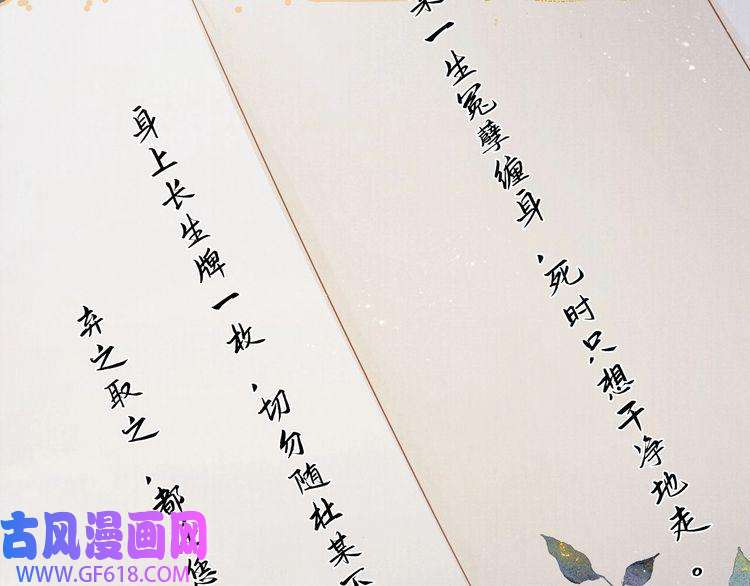 某一生冤孽缠身，死时只想干净地走。
身上长生牌一枚，切勿随杜某下
弃之取之，都
古风漫画网
WWW.GF618.COM